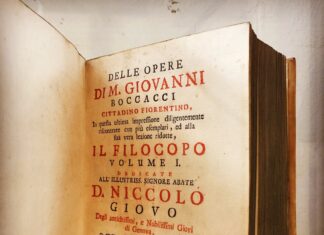 DELLE OPERE
DI M. GIOVANNI
BOCCACCI
CITTADINO FIORENTINO,
In questa ultima impressione diligentemente
riscontrate con più esemplari, ed alla
sua vera lezione ridotte,
IL FILOCOPO
VOLUME I.
DEDICATE
ALL'ILLUSTRISS. SIGNORE ABATE
D. NICCOLO
GIOVO
Degli antichissimi, e Nobilissimi Giovi
di Genova,